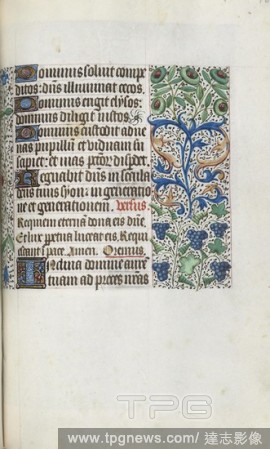 Dominus soluit compe
ditos: dn̄s illuminat cecos.
Dominus erigit elysos:
dominus diligit iustos.
Dominus custodit adue
nas pupillum et viduam su
scipiet: et uias p̄ctōr̄ disp̄det.
Regnabit dn̄s in secula
deus tuus syon: in generatio
ne et generationem. versus.
Requiem eternā dona eis dn̄e
Et lux p̄petua luceat eis. Requi
escant ī pace. Amen. Oremus.
Inclina domine aurē
tuam ad preces nr̄as
TPG
www.tpgnews.com / 達志影像